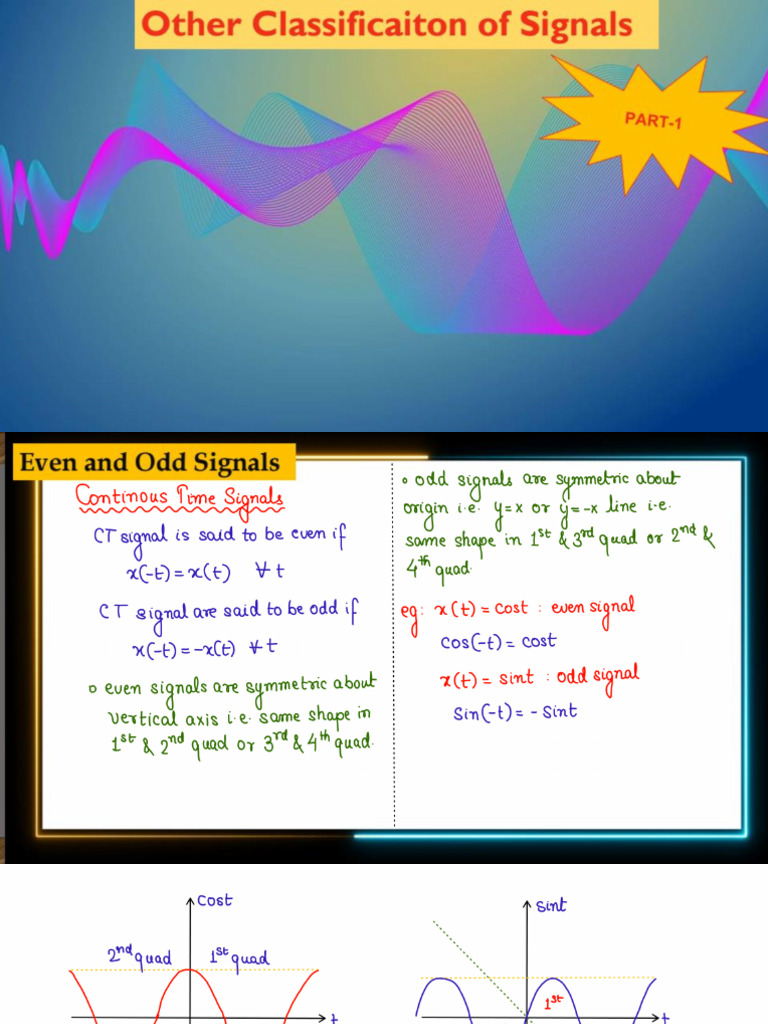 Other Classificaiton of Signals
PART-1
Even and Odd Signals
Continous Time Signals
CT signal is said to be even if
x(-t) = x(t) ∀ t
CT signal are said to be odd if
x(-t) = -x(t) ∀ t
o even signals are symmetric about
vertical axis i.e. same shape in
1st & 2nd quad or 3rd & 4th quad.
o odd signals are symmetric about
origin i.e. y=x or y=-x line i.e.
same shape in 1st & 3rd quad or 2nd &
4th quad.
eg: x(t) = cost : even signal
cos(-t) = cost
x(t) = sint : odd signal
sin(-t) = - sint
Cost
2nd quad 1st quad
t
sint
1st
t